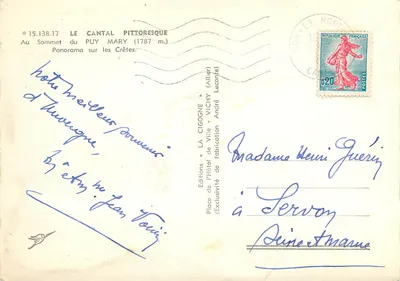 * 15.138.17 LE CANTAL PITTORESQUE
Au Sommet du PUY MARY (1787 m.)
Panorama sur les Crêtes.
notre meilleur souvenir
d'Auvergne
Mr & Mme Jean
Editions « LA CIGOGNE »
Place de l'Hôtel de Ville - VICHY (Allier)
(Exclusivité de Fabrication André Leconte)
0,20
Madame Henri Guérin
à Servon
Seine et Marne